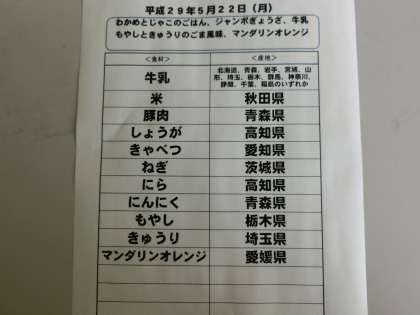 平成29年5月22日（月）
わかめとじゃこのごはん、ジャンボぎょうざ、牛乳
もやしときゅうりのごま風味、マンダリンオレンジ
＜食材＞ ＜産地＞
牛乳 北海道、青森、岩手、宮城、山
形、埼玉、栃木、群馬、神奈川、
静岡、千葉、福島のいずれか
米 秋田県
豚肉 青森県
しょうが 高知県
きゃべつ 愛知県
ねぎ 茨城県
にら 高知県
にんにく 青森県
もやし 栃木県
きゅうり 埼玉県
マンダリンオレンジ 愛媛県